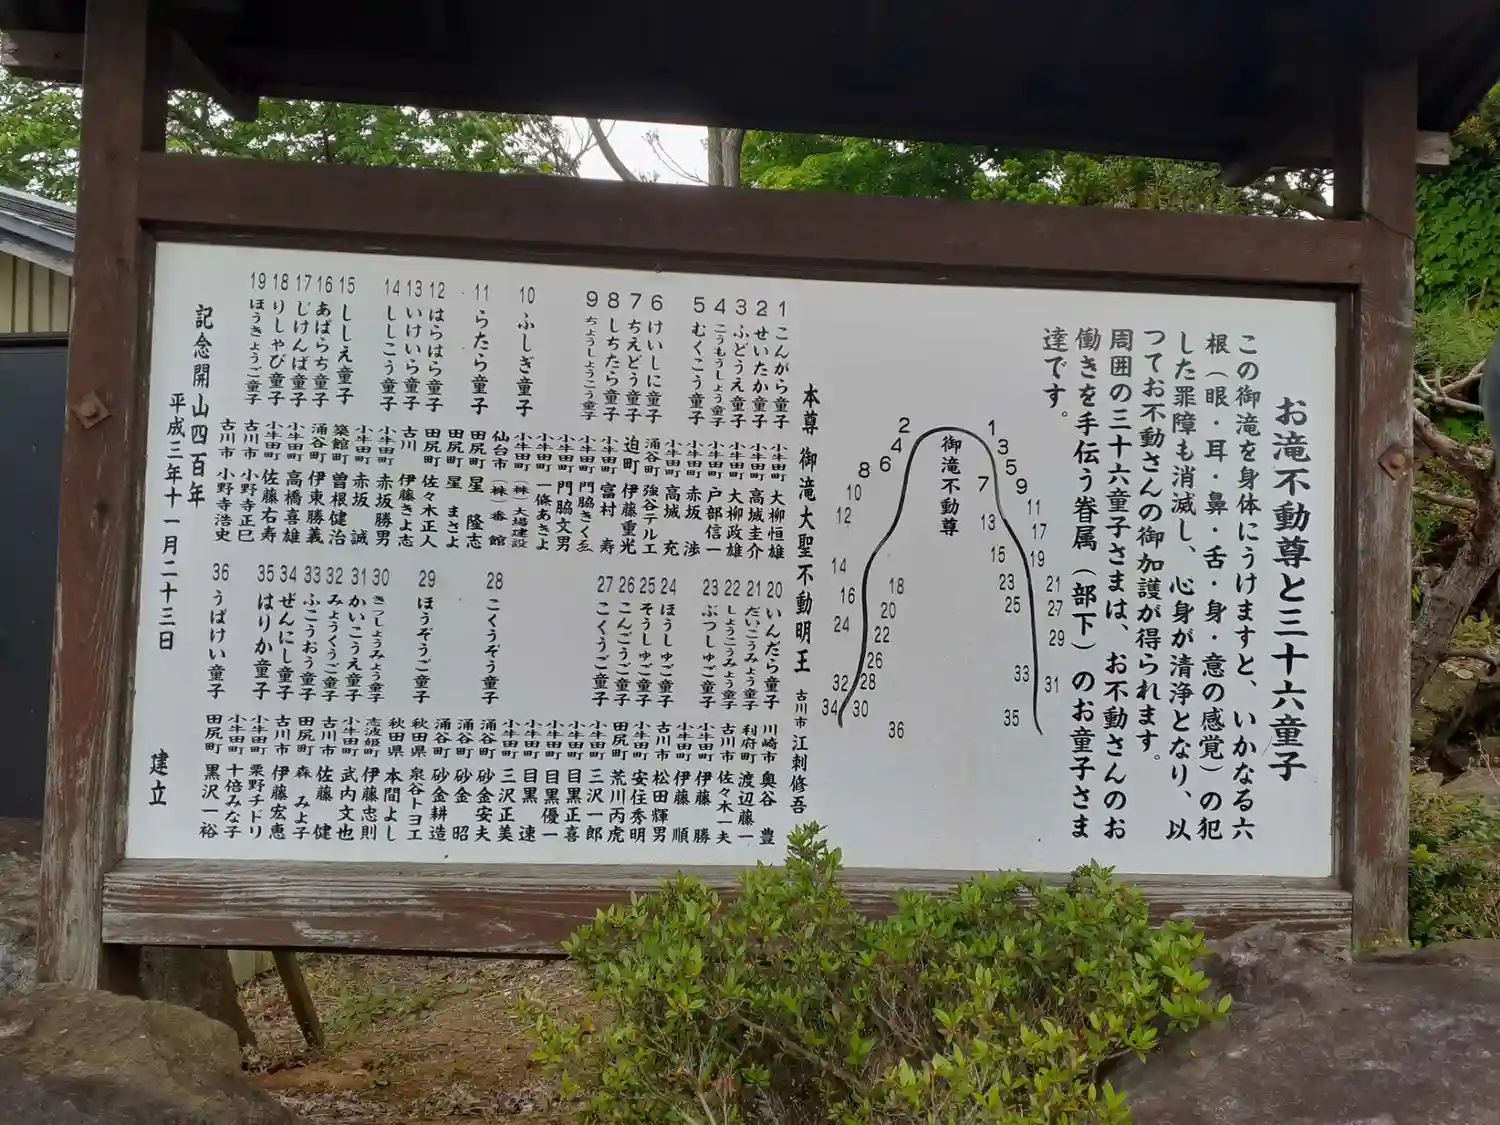 お滝不動尊と三十六童子
この御滝を身体にうけますと、いかなる六
根（眼・耳・鼻・舌・身・意の感覚）の犯
した罪障も消滅し、心身が清浄となり、以
つてお不動さんの御加護が得られます。
周囲の三十六童子さまは、お不動さんのお
働きを手伝う眷属（部下）のお童子さま
達です。
御滝不動尊
1
2
3
4
5
6
7
8
9
10
11
12
13
14
15
16
17
18
19
20
21
22
23
24
25
26
27
28
29
30
31
32
33
34
35
36
本尊 御滝大聖不動明王 古川市 江刺修吾
1 こんがら童子 小牛田町 大柳恒雄
2 せいたか童子 小牛田町 高城圭介
3 ふどうえ童子 小牛田町 大柳政雄
4 こうもうしょう童子 小牛田町 戸部信一
5 むくこう童子 小牛田町 赤坂 渉
小牛田町 高城 充
6 けいしに童子 涌谷町 強谷テルエ
7 ちえどう童子 迫町 伊藤重光
8 しちたら童子 小牛田町 富村 寿
9 ちょうしょうこう童子 小牛田町 門脇きく
小牛田町 門脇文男
小牛田町 一條あきよ
10 ふしぎ童子 小牛田町 （株）大場建設
仙台市 （株）一番館
11 らたら童子 田尻町 星 隆志
田尻町 星 まさよ
12 はらはら童子 田尻町 佐々木正人
13 いけいら童子 古川 伊藤きよ志
14 ししこう童子 小牛田町 赤坂勝男
小牛田町 赤坂 誠
15 ししえ童子 築館町 曽根健治
16 あばらち童子 涌谷町 伊東勝義
17 じけんば童子 小牛田町 高橋喜雄
18 りしゃび童子 小牛田町 佐藤右寿
19 ほうきょうご童子 古川市 小野寺正巳
古川市 小野寺浩史
20 いんだら童子 川崎市 奥谷 豊
21 だいこうみょう童子 利府町 渡辺藤一
22 しょうこうみょう童子 古川市 佐々木一夫
23 ぶつしゅご童子 小牛田町 伊藤 勝
小牛田町 伊藤 順
24 ほうしゅご童子 古川市 松田輝男
25 そうしゅご童子 小牛田町 安住秀明
26 こんごうご童子 田尻町 荒川丙虎
27 こくうご童子 小牛田町 三沢一郎
小牛田町 目黒正喜
小牛田町 目黒優一
小牛田町 目黒 速
小牛田町 三沢正美
28 こくうぞう童子 涌谷町 砂金安夫
涌谷町 砂金 昭
涌谷町 砂金耕造
29 ほうぞうご童子 秋田県 泉谷トヨエ
秋田県 本間よし
30 きっしょうみょう童子 志波姫町 伊藤忠則
31 かいこうえ童子 小牛田町 武内文也
32 みょうくうご童子 古川市 佐藤 健
33 ふこうおう童子 田尻町 森 みよ子
34 ぜんにし童子 古川市 伊藤宏恵
35 はりか童子 小牛田町 粟野チドリ
小牛田町 十倍みな子
36 うばけい童子 田尻町 黒沢一裕
記念開山四百年
平成三年十一月二十三日 建立